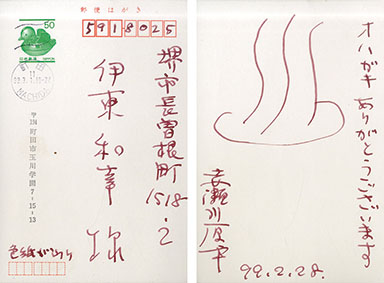 郵便はがき
50
5918025
堺市長曽根町
1518.2
伊東和幸様
町田市玉川学園
7-15-13
MACHIDA
オハガキありがとうございます
赤瀬川原平
99.2.28.